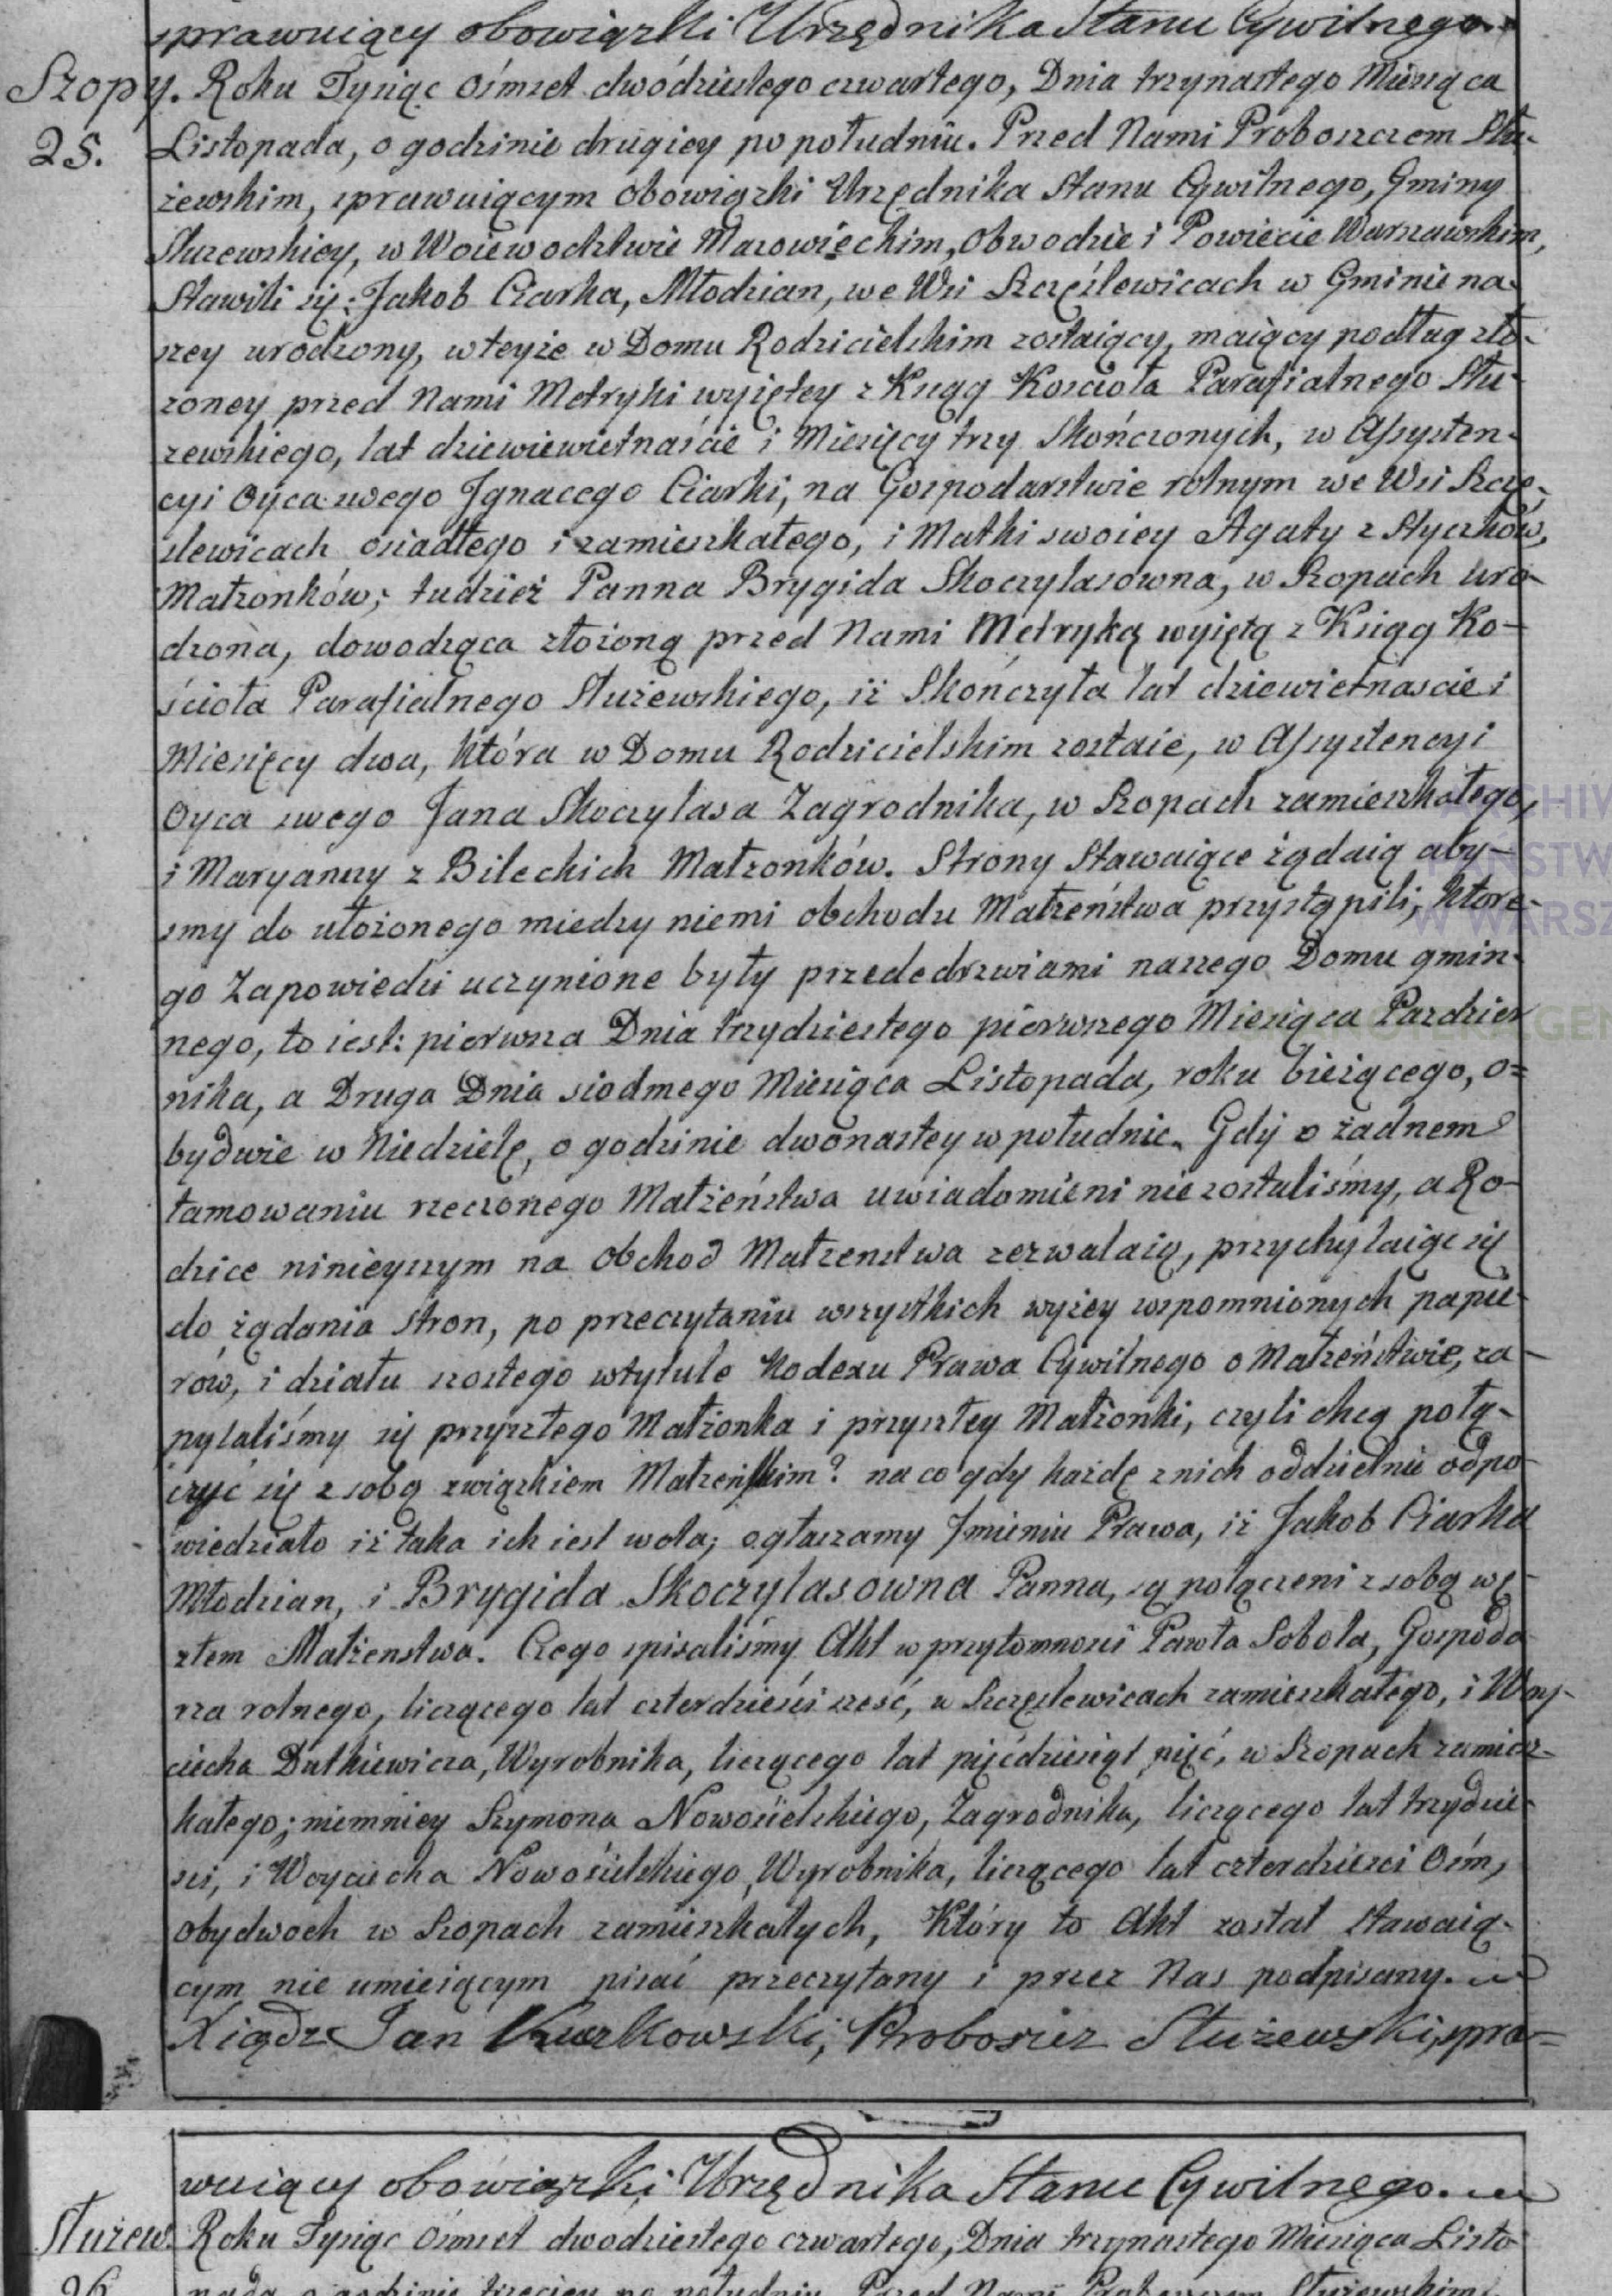 sprawuiący obowiązki Urzędnika Stanu Cywilnego.
Szopy. Roku Tysiąc Ośmset dwódziestego czwartego, Dnia trzynastego Miesiąca
25. Listopada, o godzinie drugiey po południu. Przed Nami Proboszczem Słu-
żewskim, sprawuiącym obowiązki Urzędnika Stanu Cywilnego, Gminy
Służewskiey, w Woiewodztwie Mazowieckim, Obwodzie i Powiecie Warszawskim,
Stawili się: Jakob Ciarka, Młodzian, we Wsi Szczęślewicach w Gminie na-
szey urodzony, w teyże w Domu Rodzicielskim zostaiący, maiący podług zło-
żoney przed Nami Metryki wyiętey z Ksiąg Kościoła Parafialnego Słu-
żewskiego, lat dziewiewietnaście i Miesięcy trzy Skończonych, w Assysten-
cyi Oyca swego Jgnacego Ciarki, na Gospodarstwie rolnym we Wsi Szczę-
slewicach osiadłego i zamieszkałego, i Matki swoiey Agaty z Styczków,
Małżonków; tudzież Panna Brygida Skoczylasowna, w Szopach uro-
dzona, dowodząca złożoną przed Nami Metryką wyiętą z Ksiąg Ko-
ścioła Parafialnego Służewskiego, iż Skończyła lat dziewietnascie i
Miesięcy dwa, która w Domu Rodzicielskim zostaie, w Assystencyi
Oyca swego Jana Skoczylasa Zagrodnika, w Szopach zamieszkałego,
i Maryanny z Bileckich Małżonków. Strony Stawaiące żądaią aby-
smy do ułożonego miedzy niemi obchodu Małżeństwa przystąpili, które-
go Zapowiedzi uczynione były przededrzwiami naszego Domu gmin-
nego, to iest: pierwsza Dnia trzydziestego pierwszego Miesiąca Pazdzier
nika, a Druga Dnia siodmego Miesiąca Listopada, roku bieżącego, o=
bydwie w Niedzielę, o godzinie dwonastey w południe. Gdy o żadnem
tamowaniu rzeczonego Małżeństwa uwiadomieni nie zostaliśmy, a Ro-
dzice ninieyszym na obchod Małżenstwa zezwalaią, przychylaiąc się
do żądania stron, po przeczytaniu wszystkich wyżey wspomnionych papie-
rów, i działu szostego w tytule Kodexu Prawa Cywilnego o Małżeństwie, za-
pytaliśmy się przyszłego Małżonka i przyszłey Małżonki, czyli chcą połą-
czyć się z sobą związkiem Małżeńskim? na co gdy każdę z nich oddzielnie odpo-
wiedziało iż taka ich iest wola; ogłaszamy Jmieniu Prawa, iż Jakob Ciarka
Młodzian, i Brygida Skoczylasowna Panna, są połączeni z sobą wę-
złem Małżenstwa. Czego spisaliśmy Akt w przytomnosci Pawła Sobola, Gospoda
rza rolnego, liczącego lat czterdzieści sześć, w Szczęslewicach zamieszkałego, i Woy-
ciecha Dutkiewicza, Wyrobnika, liczącego lat pięcdziesiąt pięć, w Szopach zamiesz-
kałego; niemniey Szymona Nowosielskiego, Zagrodnika, liczącego lat trzydzie-
sci, i Woyciecha Nowosielskiego, Wyrobnika, liczącego lat czterdzieści Ośm,
obydwoch w Szopach zamieszkałych, Który to Akt został stawaią-
cym nie umieiącym pisać przeczytany i przez Nas podpisany.
Xiądz Jan Kurkowski, Proboszcz Służewski, spra=
wuiący obowiązki Urzędnika Stanu Cywilnego.
Służew. Roku Tysiąc Ośmset dwodziestego czwartego, Dnia trzynastego Miesiąca Listo
26. pada o godzinie trzeciey po południu. Przed Nami Proboszczem Służewskim